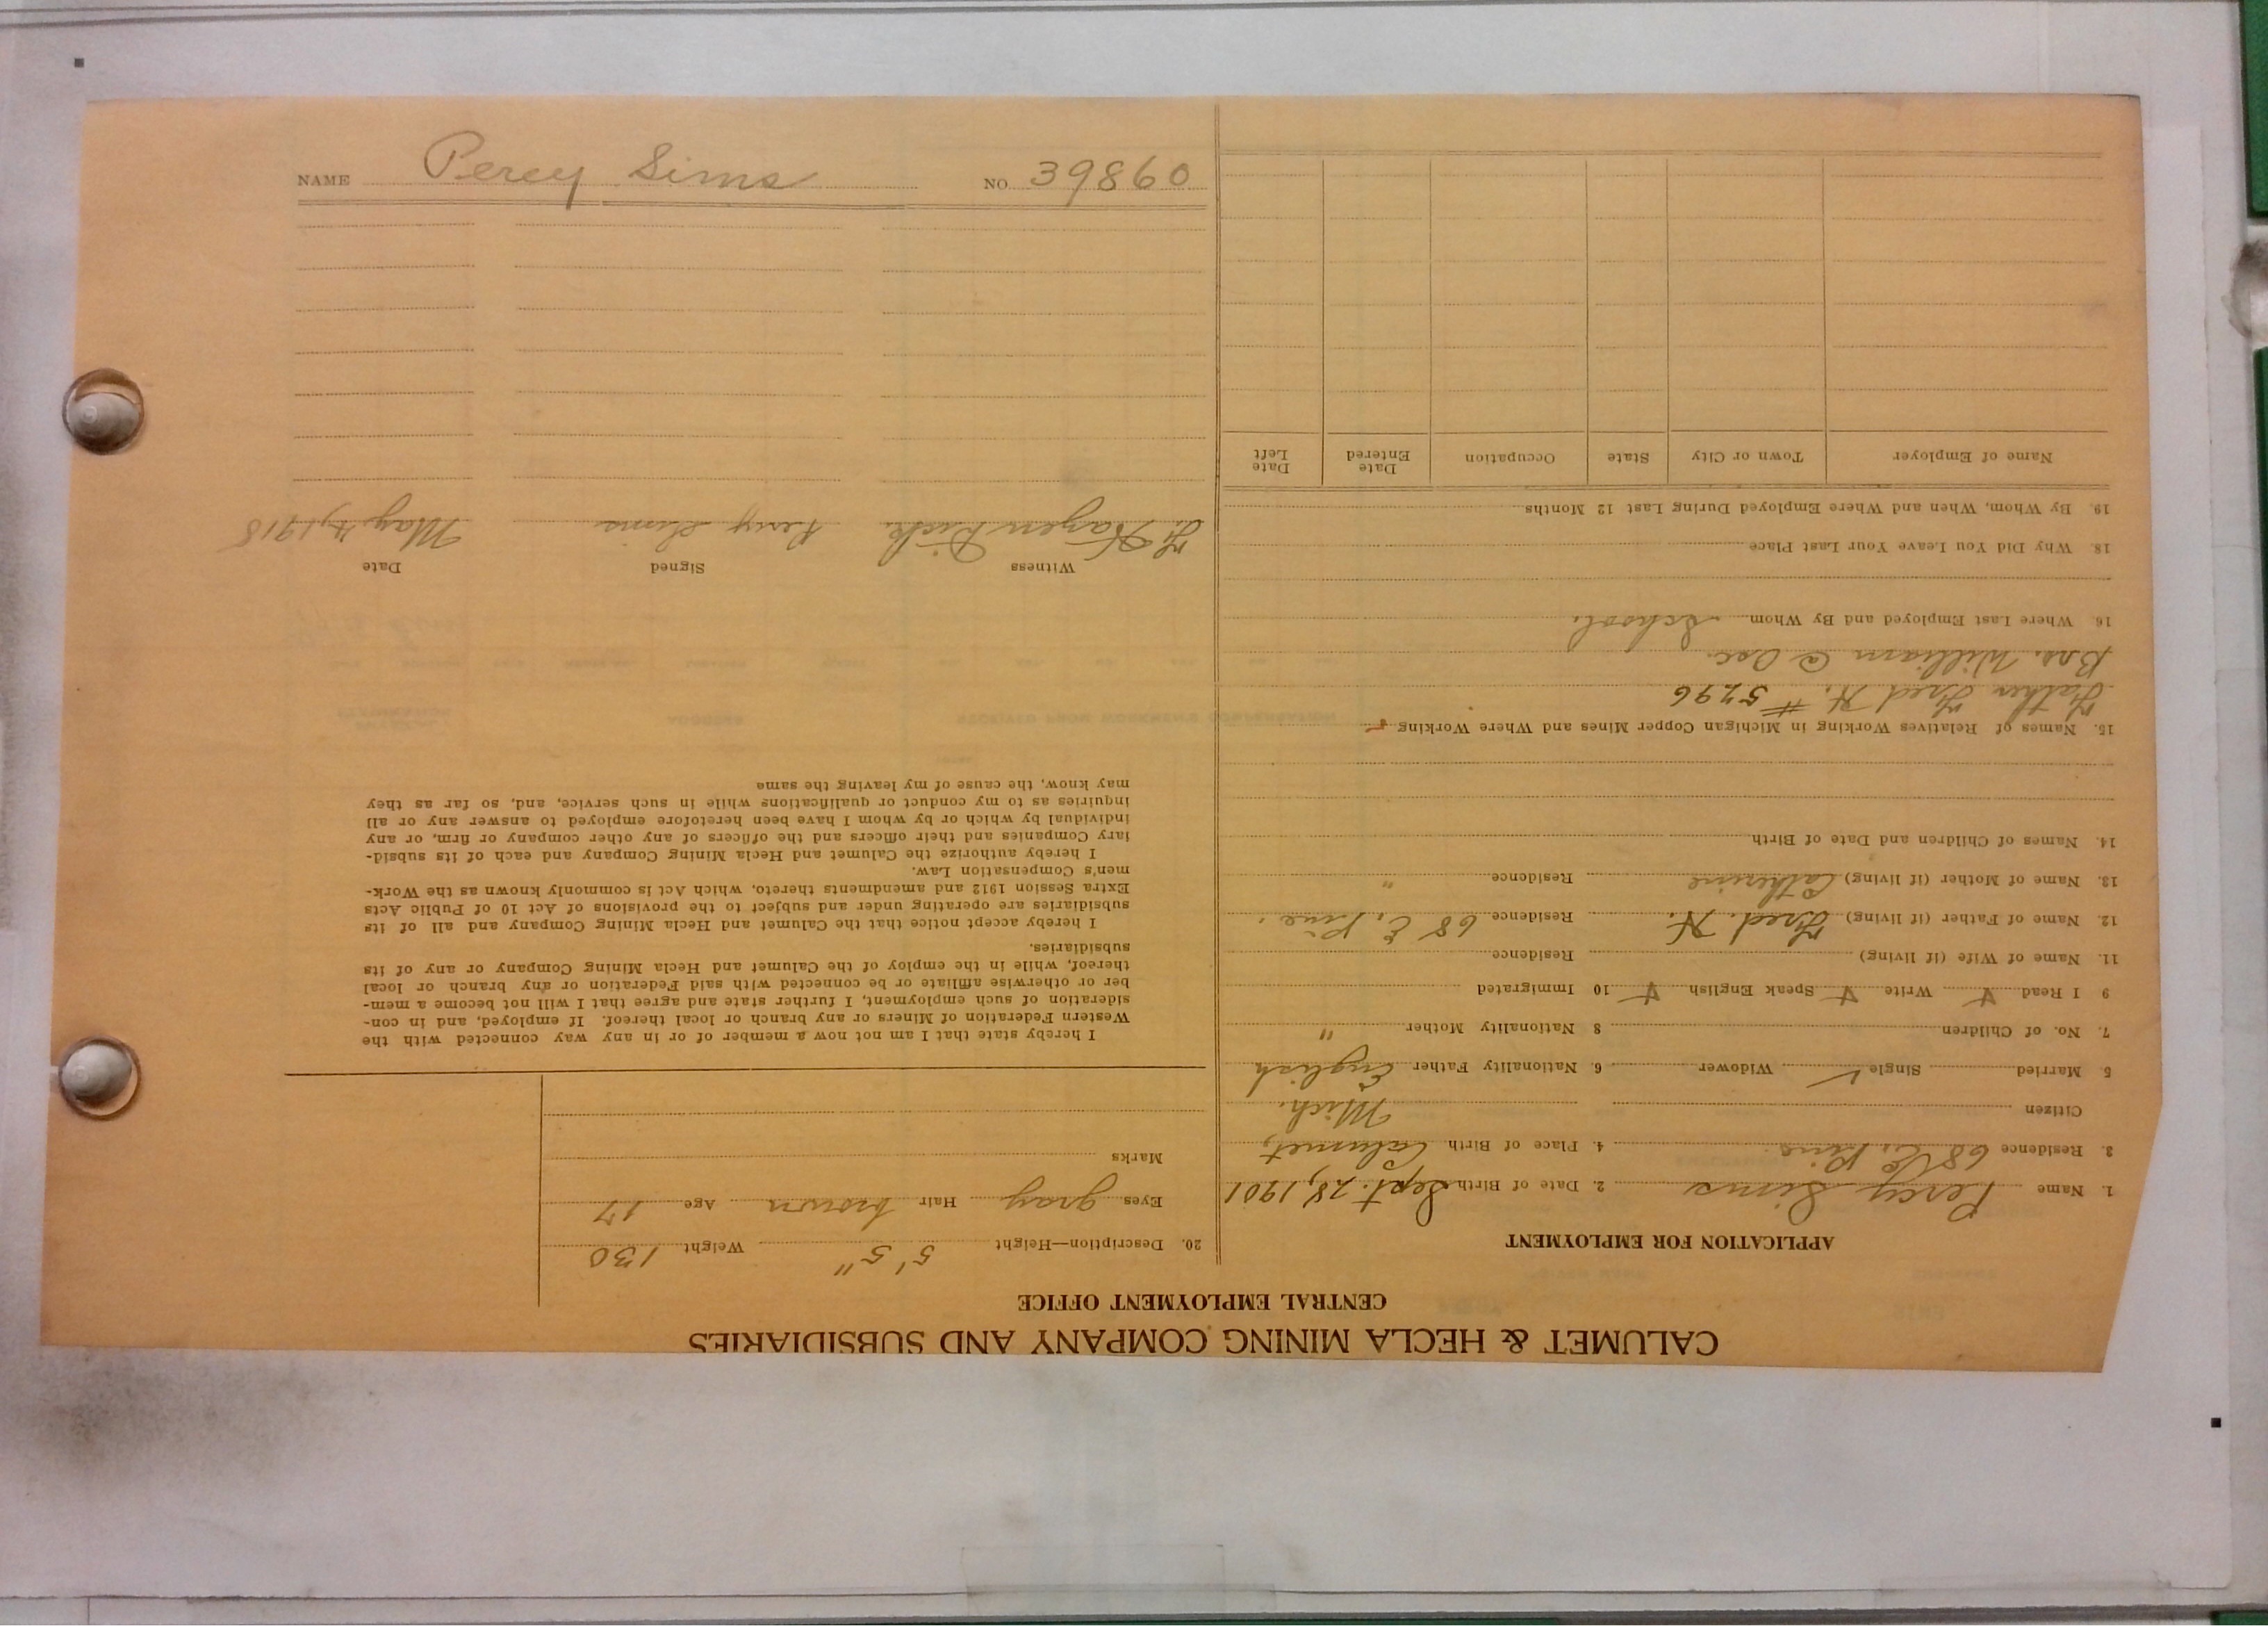 CALUMET & HECLA MINING COMPANY AND SUBSIDIARIES
CENTRAL EMPLOYMENT OFFICE
APPLICATION FOR EMPLOYMENT
1. Name Percy Sims 2. Date of Birth Sept. 28, 1901
3. Residence 68 E. Pine 4. Place of Birth Calumet,
Citizen Mich.
5 Married Single ✓ Widower 6. Nationality Father English
7. No. of Children 8 Nationality Mother "
9 I Read Y Write Y Speak English Y 10 Immigrated
11. Name of Wife (if living) Residence
12. Name of Father (if living) Fred. H. Residence 68 E. Pine.
13. Name of Mother (if living) Catherine Residence "
14. Names of Children and Date of Birth
15. Names of Relatives Working in Michigan Copper Mines and Where Working
Father Fred H. # 5296
Bro. William @ Osc.
16 Where Last Employed and By Whom School.
18. Why Did You Leave Your Last Place
19. By Whom, When and Where Employed During Last 12 Months
Name of Employer Town or City State Occupation Date Entered Date Left
20. Description—Height 5' 5" Weight 130
Eyes gray Hair brown Age 17
Marks
I hereby state that I am not now a member of or in any way connected with the
Western Federation of Miners or any branch or local thereof. If employed, and in con-
sideration of such employment, I further state and agree that I will not become a mem-
ber or otherwise affiliate or be connected with said Federation or any branch or local
thereof, while in the employ of the Calumet and Hecla Mining Company or any of its
subsidiaries.
I hereby accept notice that the Calumet and Hecla Mining Company and all of its
subsidiaries are operating under and subject to the provisions of Act 10 of Public Acts
Extra Session 1912 and amendments thereto, which Act is commonly known as the Work-
men's Compensation Law.
I hereby authorize the Calumet and Hecla Mining Company and each of its subsid-
iary Companies and their officers and the officers of any other company or firm, or any
individual by which or by whom I have been heretofore employed to answer any or all
inquiries as to my conduct or qualifications while in such service, and, so far as they
may know, the cause of my leaving the same
Witness Signed Date
Hazen Dick. Percy Sims May 4, 1918
NAME Percy Sims NO 39860